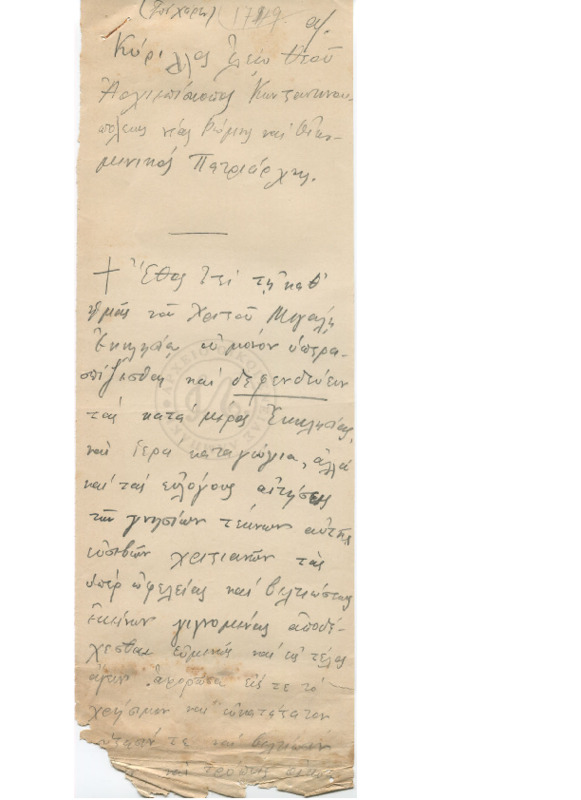 (Γρηγορίου) 1749. αʹ.
Κύριλλος ἐλέῳ Θεοῦ
Ἀρχιεπίσκοπος Κωνσταντινου-
πόλεως νέας Ῥώμης καὶ Οἰκου-
μενικὸς Πατριάρχης.
† Ἔθος ἐστὶ τῇ καθ'
ἡμᾶς τοῦ Χριστοῦ Μεγάλῃ
Ἐκκλησίᾳ οὐ μόνον ὑπερα-
σπίζεσθαι καὶ δεφενδεύειν
τὰς κατὰ μέρος Ἐκκλησίας,
καὶ ἱερὰ καταγώγια, ἀλλὰ
καὶ τὰς εὐλόγους αἰτήσεις
τῶν γνησίων τέκνων αὐτῆς
εὐσεβῶν χριστιανῶν τὰς
ὑπὲρ ὠφελείας καὶ βελτιώσεως
ἐκείνων γιγνομένας ἀποδέ-
χεσθαι εὐμενῶς καὶ εἰς τέλος
ἄγειν ἀφορῶσα εἴς τε τὸ
χρήσιμον καὶ
τε καὶ βελτίωσιν
καὶ τρόπους